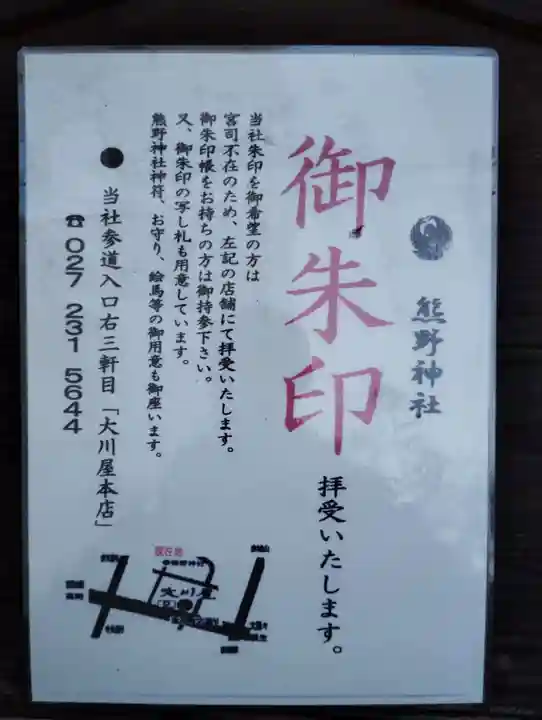 熊野神社
御朱印
拝受いたします。
当社朱印を御希望の方は
宮司不在のため、左記の店舗にて拝受いたします。
御朱印帳をお持ちの方は御持参下さい。
又、御朱印の写し札も用意しています。
熊野神社神符、お守り、絵馬等の御用意も御座います。
● 当社参道入口右三軒目「大川屋本店」
☎027 231 5644
現在地
大川屋